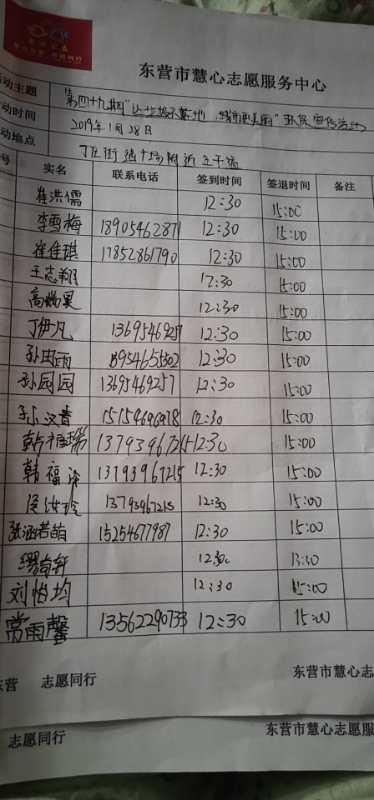 东营市慧心志愿服务中心
动主题 "第四十九期"让垃圾不落地 城市更美丽"环保宣传活动
动时间 2019年1月28日
动地点
号 实名 联系电话 签到时间 签退时间 备注
崔洪儒 12:30 15:00
李雪梅 18905462871 12:30 15:00
崔佳琪 17852861790 12:30 15:00
王志翔 12:30 15:00
12:30 15:00
丁伊凡 12:30 15:00
12:30 15:00
孙园园 13695469257 12:30 15:00
孙汉青 12:30 15:00
13793967215 12:30 15:00
韩福 13793967215 12:30 15:00
13793967215 12:30 15:00
张涵若皓 15254677987 12:30 15:00
12:30
刘怡均 12:30 15:00
常雨馨 13562290733 12:30 15:00
东营 志愿同行 东营市慧心志
志愿同行 东营市慧心志愿服